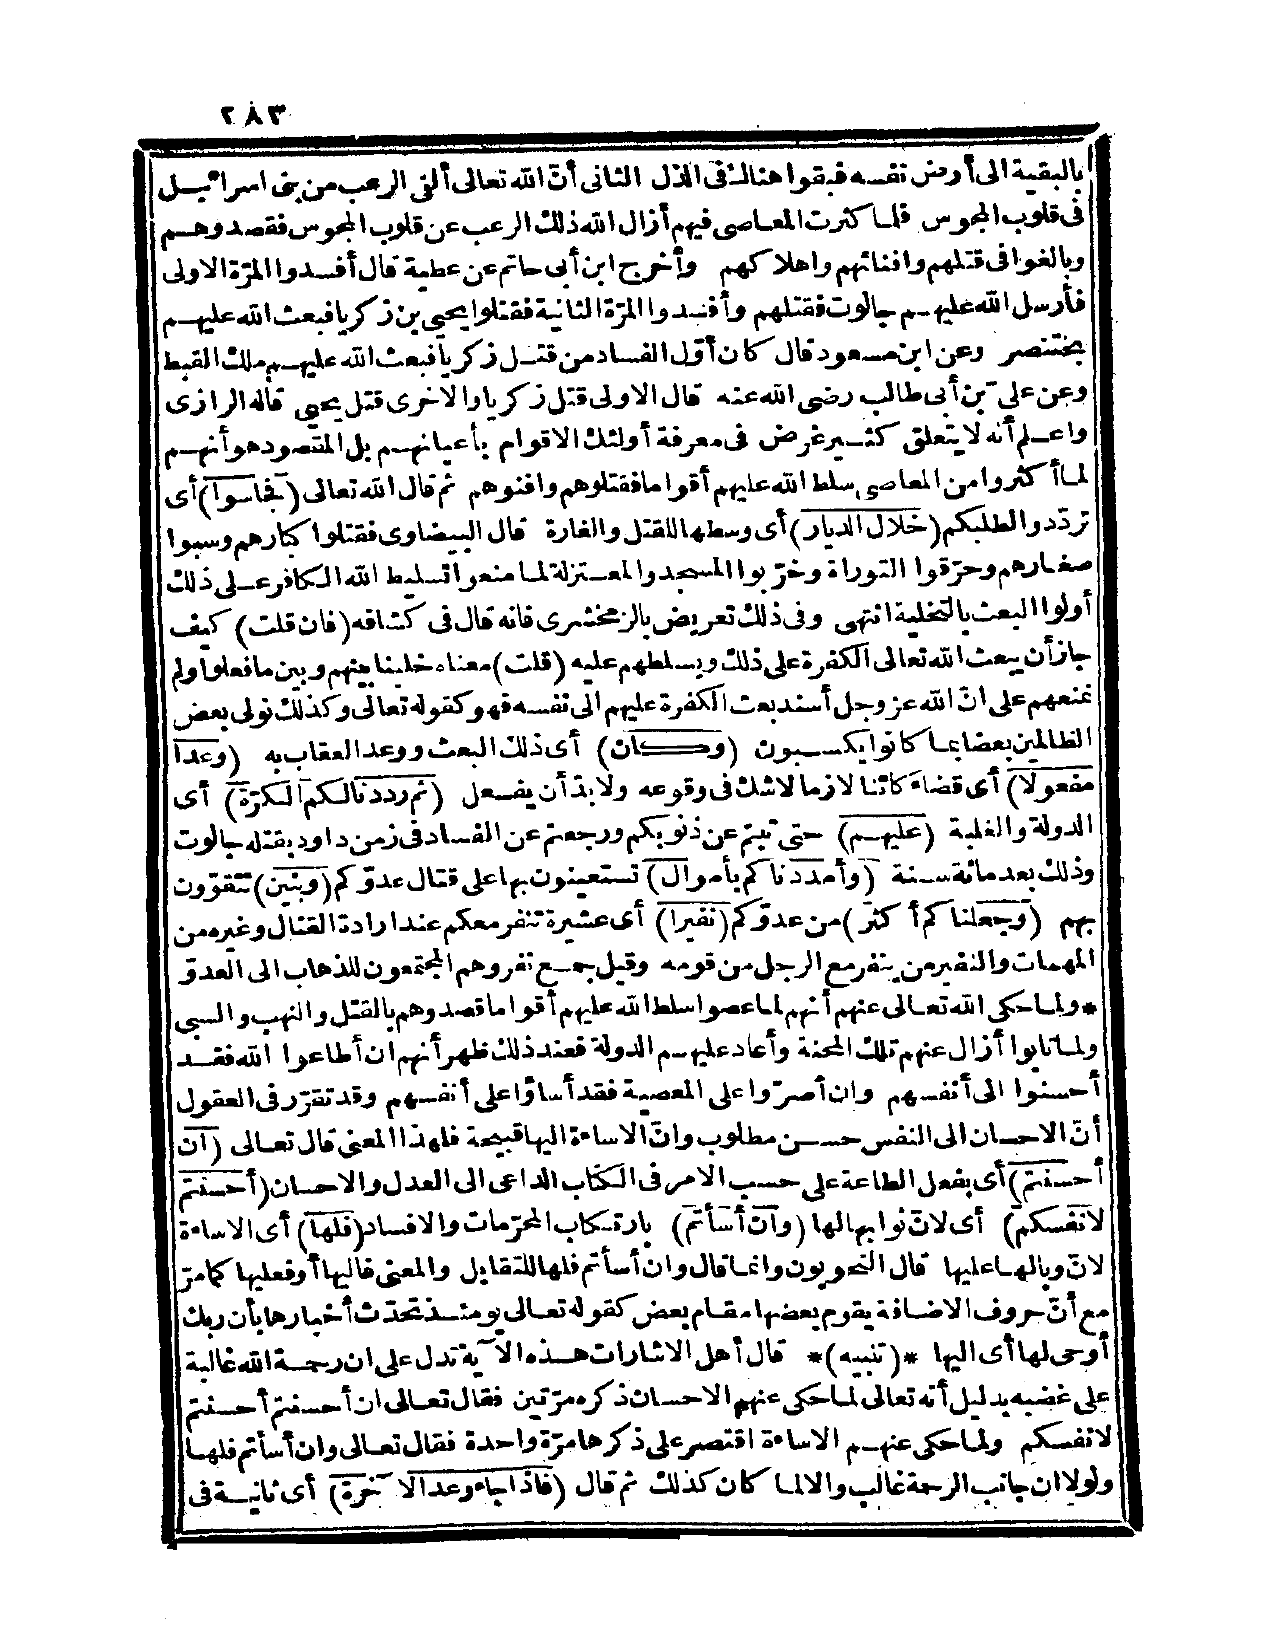 ٢٨٣
بالبقية الى أرض نفسه فبقوا هناك فى الذل الثانى أنّ الله تعالى ألقى الرعب من بنى اسرائيل
فى قلوب المجوس فلما كثرت المعاصى فيهم أزال الله ذلك الرعب عن قلوب المجوس فقصدوهم
وبالغوا فى قتلهم وافنائهم واهلاكهم وأخرج ابن أبى حاتم عن عطية قال أفسدوا المرّة الاولى
فأرسل الله عليهم جالوت فقتلهم وأفسدوا المرّة الثانية فقتلوا يحيى بن زكريا فبعث الله عليهم
بختنصر وعن ابن مسعود قال كان أوّل الفساد من قتل زكريا فبعث الله عليهم ملك القبط
وعن علىّ بن أبى طالب رضى الله عنه قال الاولى قتل زكريا والاخرى قتل يحيى قاله الرازى
واعلم أنه لا يتعلق كثير غرض فى معرفة أولئك الاقوام بأعيانهم بل المقصود هو أنهم
لما أكثروا من المعاصى سلط الله عليهم أقواما فقتلوهم وافنوهم ثم قال الله تعالى (فجاسوا) أى
تردّدوا لطلبكم (خلال الديار) أى وسطها للقتل والغارة قال البيضاوى فقتلوا كبارهم وسبوا
صغارهم وحرّقوا التوراة وخرّبوا المسجد والمعتزلة لما منعوا تسليط الله الكافر على ذلك
أولوا البعث بالتخلية انتهى وفى ذلك تعريض بالزمخشرى فانه قال فى كشافه (فان قلت) كيف
جاز أن يبعث الله تعالى الكفرة على ذلك ويسلطهم عليه (قلت) معناه خلينا بينهم وبين ما فعلوا ولم
نمنعهم على انّ الله عز وجل أسند بعث الكفرة عليهم الى نفسه فهو كقوله تعالى وكذلك نولى بعض
الظالمين بعضا بما كانوا يكسبون (وكان) أى ذلك البعث ووعد العقاب به (وعدا
مفعولا) أى قضاء كائنا لازما لا شك فى وقوعه ولا بدّ أن يفعل (ثم رددنا لكم الكرّة) أى
الدولة والغلبة (عليهم) حتى تبتم عن ذنوبكم ورجعتم عن الفساد فى زمن داود بقتله جالوت
وذلك بعد مائة سنة (وأمددناكم بأموال) تستعينون بها على قتال عدوّكم (وبنين) تتقوّون
بهم (وجعلناكم أكثر) من عدوّكم (نفيرا) أى عشيرة تنفر معكم عند ارادة القتال وغيره من
المهمات والنفير من ينفر مع الرجل من قومه وقيل جمع نفر وهم المجتمعون للذهاب الى العدوّ
* ولما حكى الله تعالى عنهم أنهم لما عصوا سلط الله عليهم أقواما قصدوهم بالقتل والنهب والسبى
ولما تابوا أزال عنهم تلك المحنة وأعاد عليهم الدولة فعند ذلك ظهر أنهم ان أطاعوا الله فقد
أحسنوا الى أنفسهم وان أصرّوا على المعصية فقد أساؤا على أنفسهم وقد تقرّر فى العقول
أنّ الاحسان الى النفس حسن مطلوب وانّ الاساءة اليها قبيحة فلهذا المعنى قال تعالى (ان
أحسنتم) أى بفعل الطاعة على حسب الامر فى الكتاب الداعى الى العدل والاحسان (أحسنتم
لانفسكم) أى لانّ ثوابها لها (وان أسأتم) بارتكاب المحرّمات والافساد (فلها) أى الاساءة
لانّ وبالها عليها قال النحويون وانما قال وان أسأتم فلها للتقابل والمعنى فاليها أو فعليها كما مرّ
مع أنّ حروف الاضافة يقوم بعضها مقام بعض كقوله تعالى يومئذ تحدّث أخبارها بأن ربك
أوحى لها أى اليها *(تنبيه)* قال أهل الاشارات هذه الآية تدل على ان رحمة الله غالبة
على غضبه بدليل أنه تعالى لما حكى عنهم الاحسان ذكره مرّتين فقال تعالى ان أحسنتم أحسنتم
لانفسكم ولما حكى عنهم الاساءة اقتصر على ذكرها مرّة واحدة فقال تعالى وان أسأتم فلها
ولولا ان جانب الرحمة غالب والا لما كان كذلك ثم قال (فاذا جاء وعد الآخرة) أى ثانية فى